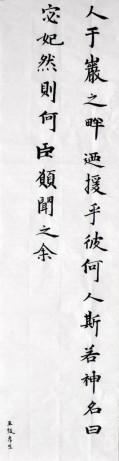 人于巖之畔迺援乎彼何人斯若神名曰
宓妃然則何臣願聞之余